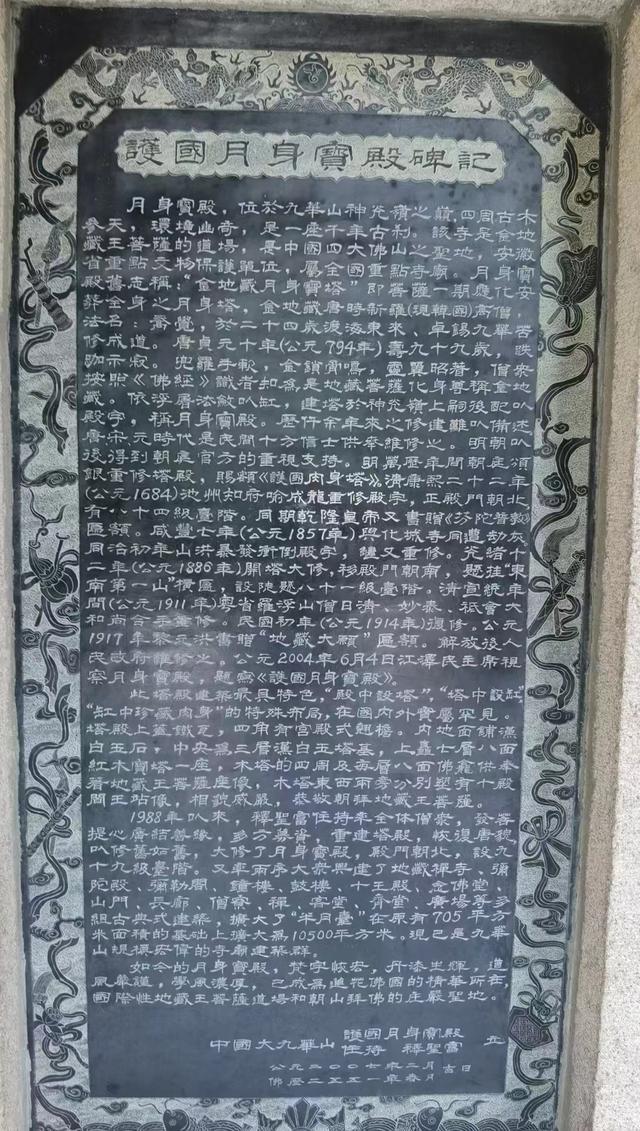 護國月身寶殿碑記
月身寶殿，位於九華山神光嶺之巔，四周古木
參天，環境幽奇，是一座千年古刹。該寺是金地
藏王菩薩的道場，是中國四大佛山之聖地，安徽
省重點文物保護單位，屬全國重點寺廟。月身寶
殿舊志稱："金地藏月身寶塔"即菩薩一期應化安
葬全身之月身塔，金地藏唐時新羅(現韓國)高僧
法名：喬覺，於二十四歲渡海東來，卓錫九華苦
修成道。唐貞元十年(公元794年)壽九十九歲，趺
跏示寂。兜羅手軟，金鎖骨鳴，靈異昭著，僧衆
按照《佛經》識者知爲是地藏菩薩化身尊稱金地
藏，依浮屠法斂以缸，建塔於神光嶺上嗣後配以
殿宇，稱月身寶殿。歷仟余年來之修建難以備述
唐宋元時代是民間十方信士供奉維修之。明朝以
後得到朝庭官方的重視支持。明萬歷年間朝庭頒
銀重修塔殿，賜額《護國肉身塔》。清康熙二十二年
(公元1684)池州知府喻成龍重修殿宇，正殿門朝北
有八十四級臺階。同期乾隆皇帝又書贈《芬陀普教》
匾額。咸豐七年(公元1857年)與化城寺同遭劫灰
同治初年山洪暴發衝倒殿宇，纏又重修。光緒十
二年(公元1886年)開塔大修，移殿門朝南，題挂"東
南第一山"橫匾，設陡題八十一級臺階。清宣統年
間(公元1911年)粵省羅浮山僧日清、妙泰、秖會大
和尚合手重修。民國初年(公元1914年)復修。公元
1917年黎元洪書贈"地藏大願"匾額。解放後人
民政府維修之。公元2004年6月4日江澤民主席視
察月身寶殿，題寫《護國月身寶殿》。
此塔殿建築最具特色，"殿中設塔"，"塔中設缸"，
"缸中珍藏肉身"的特殊布局，在國內外實屬罕見。
塔殿上蓋鐵瓦，四角有宫殿式翹檐。内地面鋪漢
白玉石，中央爲三層漢白玉塔基，上矗七層八面
紅木寶塔一座，木塔的四周及每層八面佛龕供奉
着地藏王菩薩座像，木塔東西兩旁分別塑有十殿
閻王站像，相貌威嚴，恭敬朝拜地藏王菩薩。
1988年以來，釋聖富住持率全體僧衆，發菩
提心廣結善緣，多方募資，重建塔殿，恢復唐貌，
以修舊如舊，大修了月身寶殿，殿門朝北，設九
十九級臺階。又率兩序大衆興建了地藏禪寺、彌
陀殿、彌勒閣、鐘樓、鼓樓、十王殿、金佛堂、
山門、長廊、僧寮、禪、客堂、齊堂、廣場等多
組古典式建築，擴大了"半月臺"在原有705平方
米面積的基础上擴大爲10500平方米。現已是九華
山規模宏偉的寺廟建築群。
如今的月身寶殿，梵宇恢宏，丹漆生輝，道
風舉謹，學風濃厚，已成爲蓮花佛國的精華所在，
國際性地藏王菩薩道場和朝山拜佛的庄嚴聖地。
護國月身寶殿
中國大九華山 住持 釋聖富 立
公元二〇〇七年二月吉日
佛歷二五五一年春月